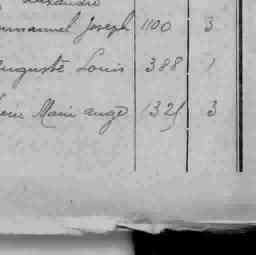 Alexandre
Emmanuel Joseph 1100 3
Auguste Louis 388 1
Marie Ange 1325 3